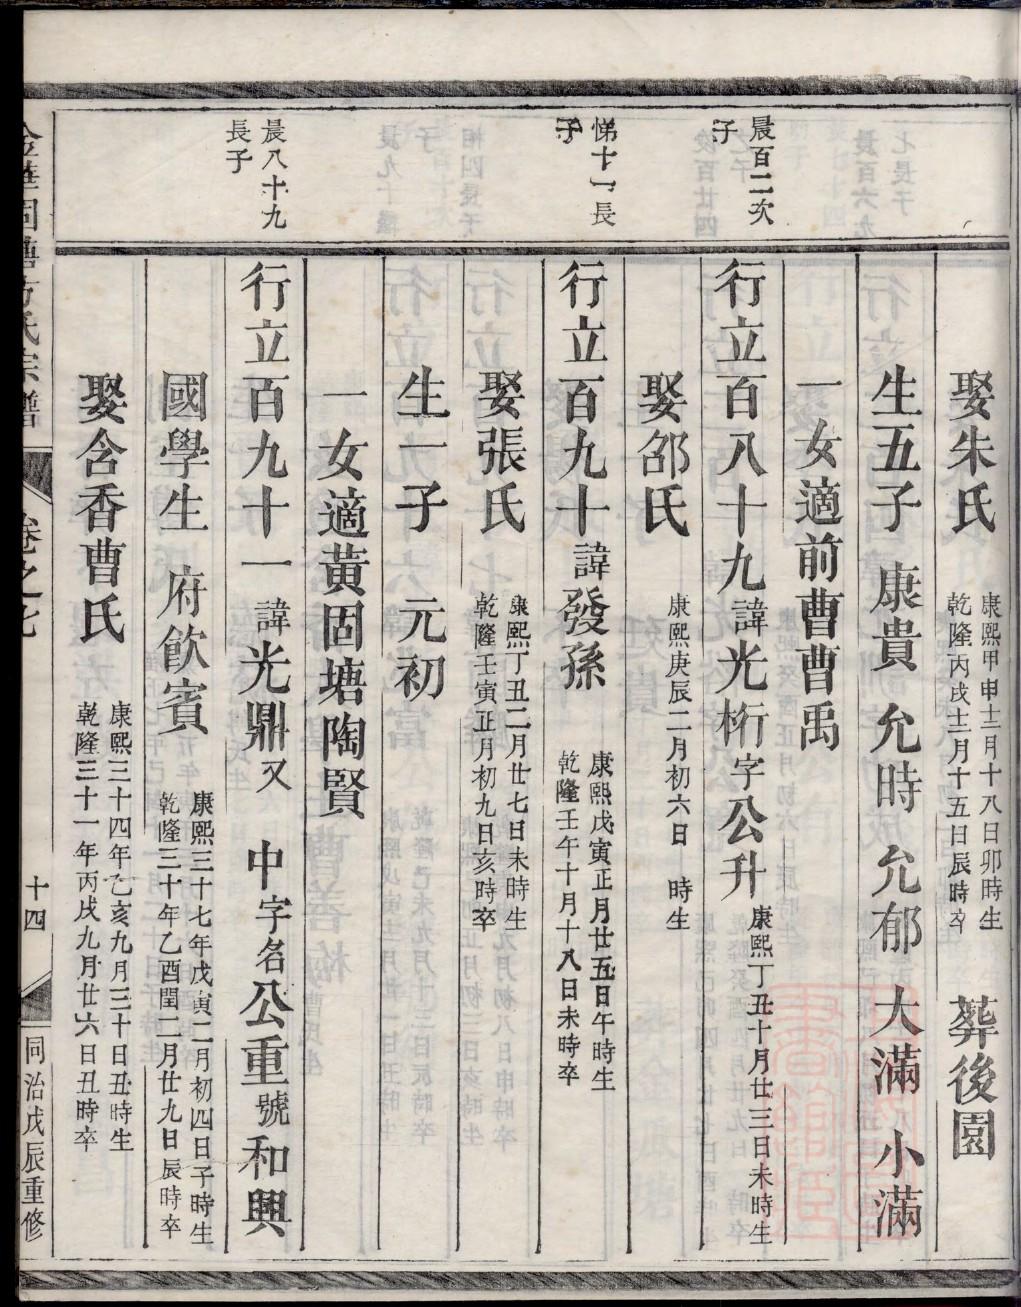 娶朱氏 康熙甲申十二月十八日卯時生
乾隆丙戌十二月十五日辰時卒 葬後園
生五子 康貴 允時 允郁 大滿 小滿
一女適前曹曹禹
晨百二次子
行立百八十九諱光桁字公升 康熙丁丑十月廿三日未時生
娶邵氏 康熙庚辰二月初六日 時生
悌十一長子
行立百九十諱發孫 康熙戊寅正月廿五日午時生
乾隆壬午十月十八日未時卒
娶張氏 康熙丁丑二月廿七日未時生
乾隆壬寅正月初九日亥時卒
生一子 元初
一女適黃固塘陶賢
晨八十九長子
行立百九十一諱光鼎又 中字名公重號和興
國學生 府飲賓 康熙三十七年戊寅二月初四日子時生
乾隆三十年乙酉閏二月廿九日辰時卒
娶含香曹氏 康熙三十四年乙亥九月三十日丑時生
乾隆三十一年丙戌九月廿六日丑時卒
氏宗譜 卷之七 十四 同治戊辰重修